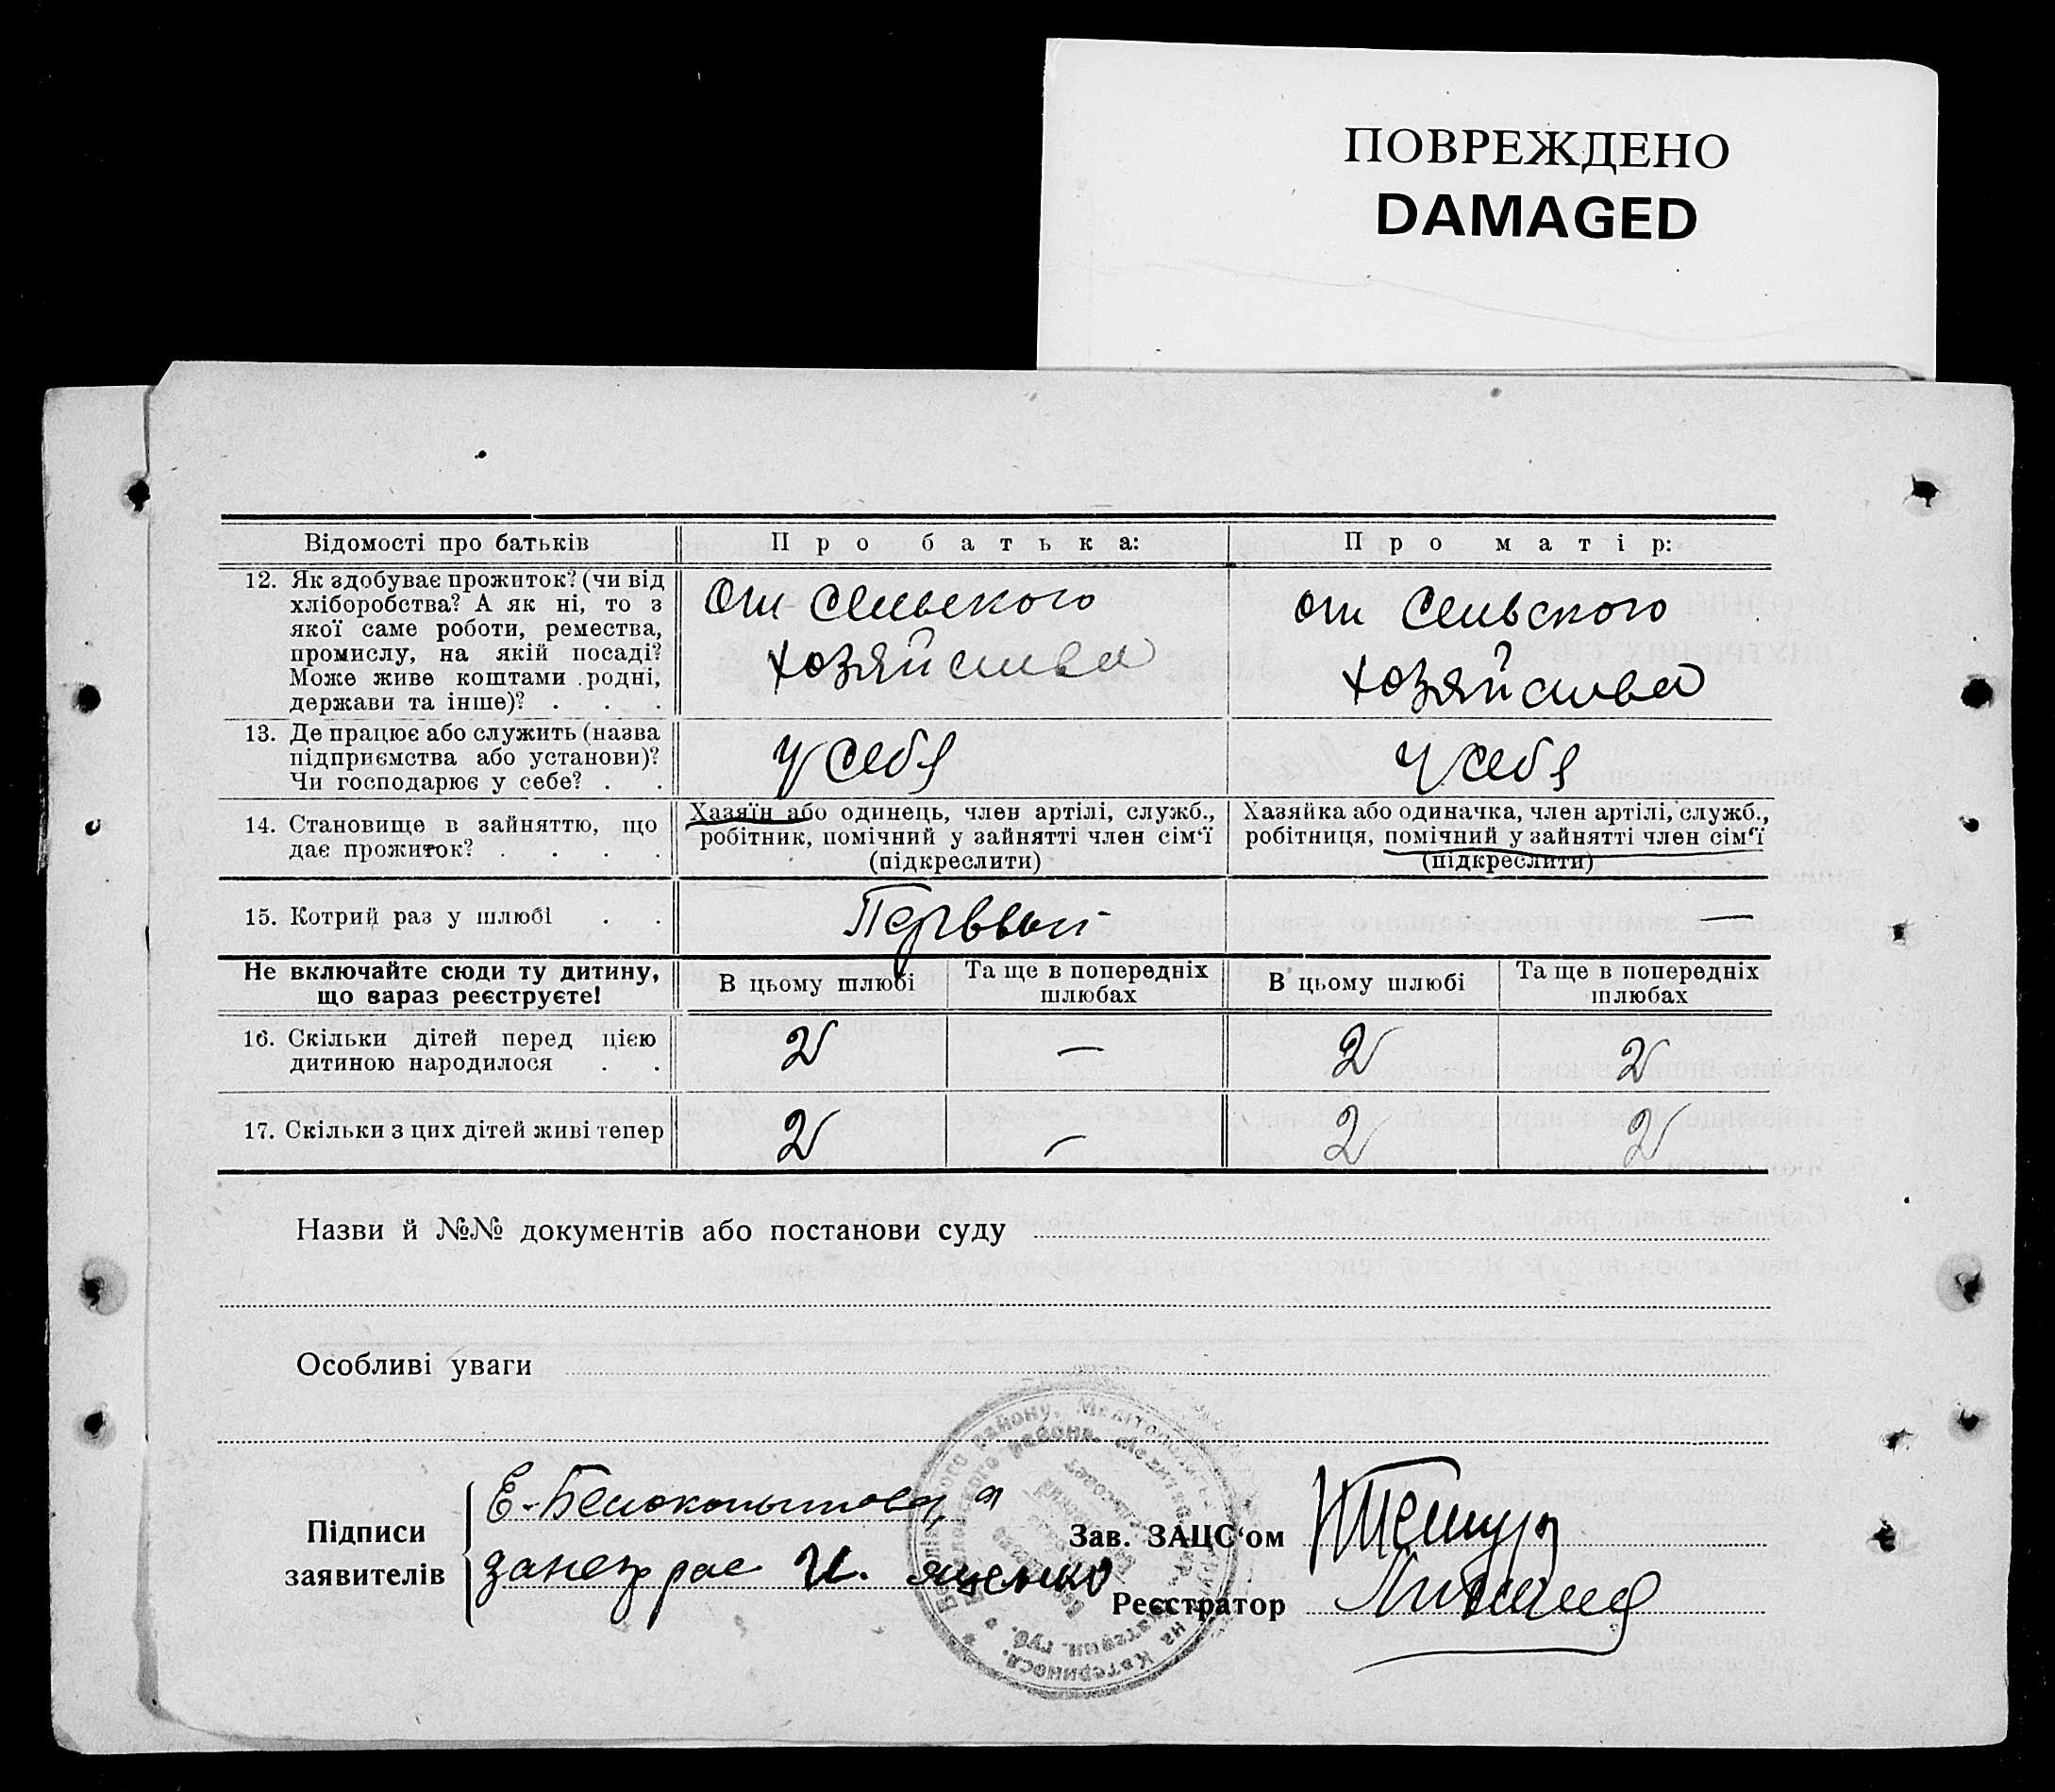 ПОВРЕЖДЕНО
DAMAGED
Відомості про батьків
Про батька:
Про матір:
12. Як здобуває прожиток? (чи від
хліборобства? А як ні, то з
якої саме роботи, ремества,
промислу, на якій посаді?
Може живе коштами родні,
держави та інше)? . . .
От сельского
хозяйства
от сельского
хозяйства
13. Де працює або служить (назва
підприємства або установи)?
Чи господарює у себе? . .
у себя
у себя
14. Становище в зайняттю, що
дає прожиток? . . . .
Хазяїн або одинець, член артілі, служб.,
робітник, помічний у зайнятті член сім'ї
(підкреслити)
Хазяйка або одиначка, член артілі, служб.,
робітниця, помічний у зайнятті член сім'ї
(підкреслити)
15. Котрий раз у шлюбі . .
Первый
—
Не включайте сюди ту дитину,
що зараз реєструєте!
В цьому шлюбі
Та ще в попередніх
шлюбах
В цьому шлюбі
Та ще в попередніх
шлюбах
16. Скільки дітей перед цією
дитиною народилося . .
2
—
2
2
17. Скільки з цих дітей живі тепер
2
—
2
2
Назви й №№ документів або постанови суду
Особливі уваги
Підписи
заявителів
Е. Белокопытова, а
за негр рас И. Яценко
Зав. ЗАЦС'ом
Реєстратор
району, Меліто
района,
на Катеринося.
губ.